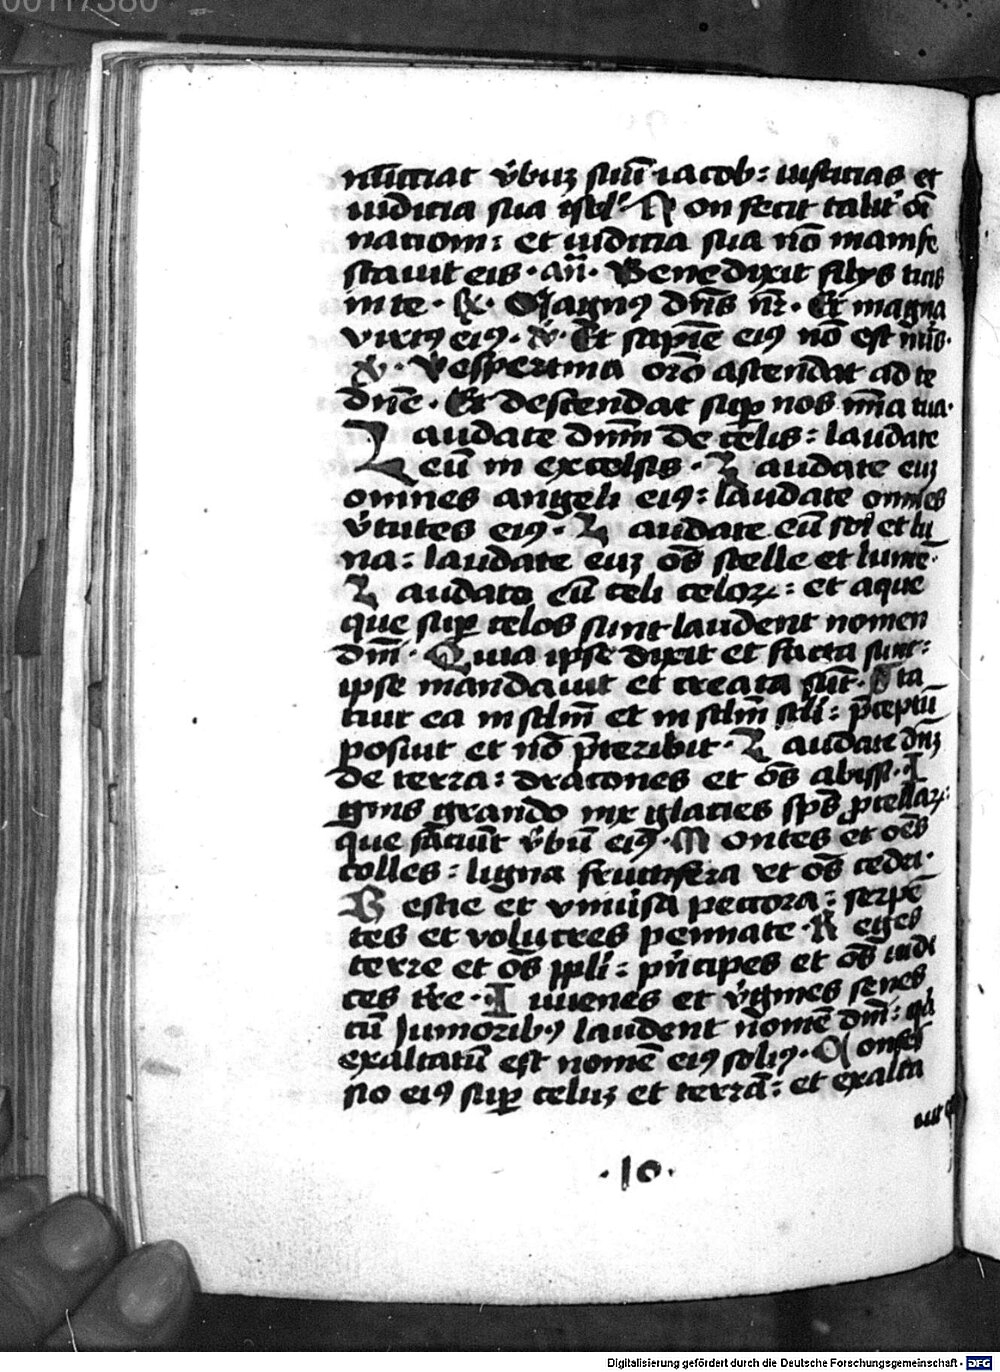 00117380
nūctiat v̄buʒ suū iacob: iusticias et
iudicia sua isrl̄ N on fecit talit' oī
nationi: et iudicia sua nō manife
stauit eis. an̄. Benedixit filijs tuis
in te. Magnꝰ dn̄s nr̄. Et magna
virtꝰ eiꝰ. v̄. Et sapiē eiꝰ nō est nūs.
v̄. Vespertina orō ascendat ad te
dn̄e. Et descendat suꝑ nos mīa tua.
L audate dnm̄ de celis: laudate
eū in excelsis. L audate euʒ
omnes angeli eiꝰ: laudate omnes
v̄tutes eiꝰ. L audate eū sol et lu
na: laudate euʒ oēs stelle et lumē.
L audate eū celi celoꝝ: et aque
que suꝑ celos sunt laudent nomen
dm̄. Quia ipse dixit et facta sunt:
ipse mandauit et creata sūt. S ta
tuit ea in sc̄lm̄ et in sc̄lm̄ sc̄li: p̄ceptū
posuit et nō p̄teribit. L audate dn̄ʒ
de terra: dracones et oēs abissi. I
gnis grando nix glacies sp̄s ꝓcellaꝝ:
que faciūt v̄bū eiꝰ. M ontes et oēs
colles: ligna fructifera et oēs cedri.
B estie et vniūsa peccora: serpē
tes et volucres pennate. R eges
terre et oēs ppl̄i: pn̄cipes et oēs iudi
ces tr̄e. I uuenes et v̄gines senes
cū Junioribꝰ laudent nomē dm̄: qꝛ
exaltatū est nomē eiꝰ soliꝰ. C onfes
sio eiꝰ suꝑ celuʒ et terrā: et exalta
uit
.10.
Digitalisierung gefördert durch die Deutsche Forschungsgemeinschaft - DFG